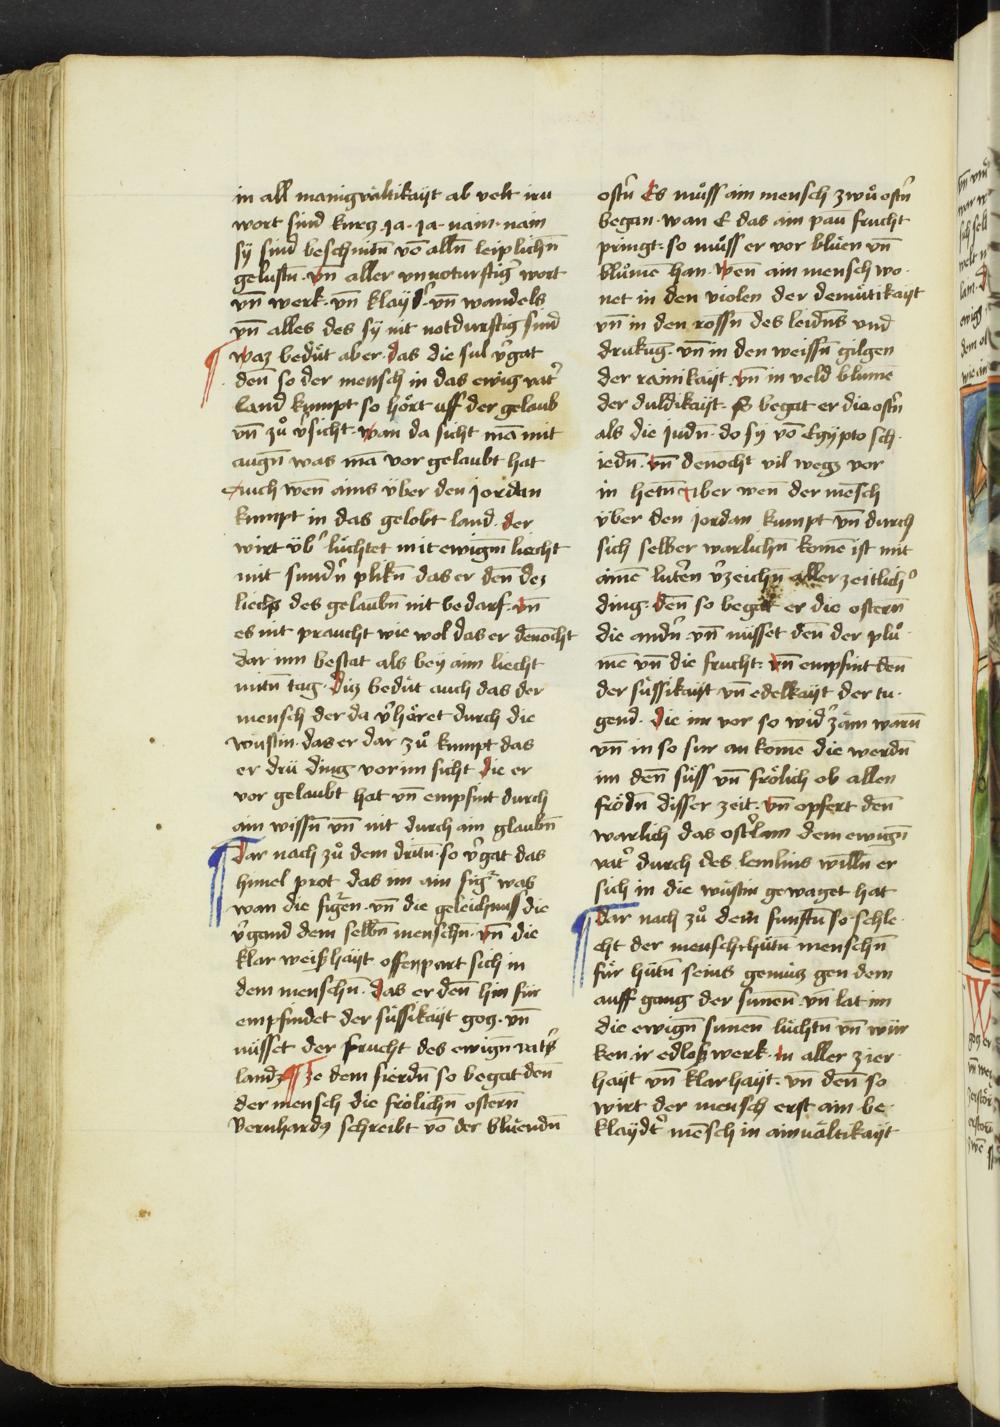 in all manigvältikayt ab velt iru
wort sind kurcz ja · ja · nain · nain
sÿ sind beschnitn̄ vō alln̄ leiplichn̄
gelustn̄ · vn̄ aller vnnoturftigˀ wort
vn̄ werk · vn̄ klaydˀ · vn̄ wandels
vn̄ alles des sÿ nit notdurftig sind
waz bedüt aber · das die sul vˀgat
den̄ so der mensch in das ewig vatˀ
land kumpt so hört uff der gelaub
vn̄ zů vˀsicht · wan da sicht mā mit
augn̄ was mā vor gelaubt hat
Auch wen̄ ains über den jordan
kumpt in das gelobt land · der
wirt übˀ lüchtet mit ewigm̄ liecht
mit sundˀn̄ plikn̄ das er den̄ dez
liechcz des gelaubn̄ nit bedarf · vn̄
es nit praucht wie wol das er denocht
dar inn bestat als bey aim liecht
mitn̄ tag · Diz bedüt auch das der
mensch der da vˀhöret durch die
wüstin · das er dar zů kumpt das
er drü ding vor im sicht die er
vor gelaubt hat vn̄ empfint durch
ain wissn̄ vn̄ nit durch ain glaubn̄
Dar nach zů dem drittn̄ · so vˀgat das
himel prot das im ain figˀ was
wan die figˀen · vn̄ die geleichnuss die
vˀgand dem selbn̄ menschn̄ · vn̄ die
klar weißhayt offenpart sich in
dem menschn̄ · das er den̄ hin für
empfindet der süssikayt gog · vn̄
nüsset der frucht des ewign̄ vatˀs
landz ¶ Ze dem fierdn̄ so begat den̄
der mensch die frölichn̄ ostern̄
Bernhardꝰ schreibt vō der blüendn̄
ostˀn̄ Es můss ain mensch zwů ostˀn̄
began · wan E das ain pau frucht
pringt · so můss er vor blüen vn̄
blůme han · wen̄ ain mensch wo
net in den violen der demütikayt
vn̄ in den rossn̄ des leidn̄s vnd
drukūg · vn̄ in den weissn̄ gilgen
der rainikayt · vn̄ in veld blumē
der duldikayt · So begat er die ostˀn̄
als die judn̄ · do sÿ vō Egypto sch
iedn̄ · vn̄ denocht vil wegz vor
in hetn̄ Aber wen̄ der mēsch
über den jordan kumpt vn̄ durch
sich selber warlichn̄ komē ist mit
aimē lutˀen vˀzeichn̄ aller zeitlichˀ
ding · den̄ so begat er die ostern̄
die andˀn̄ · vn̄ nüsset den̄ der plů
mē vn̄ die frucht: vn̄ empfint den̄
der süssikayt vn̄ edelkayt der tu
gend · die im vor so widˀ zäm warn̄
vn̄ in so sur an komē die werdn̄
im den̄ süss vn̄ frölich ob allen
frödn̄ disser zeit: vn̄ opfert den̄
warlich das ostˀlam dem ewign̄
vatˀ durch des lemlins willn̄ er
sich in die wüstin gewaget hat
Dar nach zů dem funftn̄ so schle
cht der mensch
für hütn̄ seins gemütz gen dem
auff gang der sunen̄ vn̄ lat im
die ewign̄ sunen̄ lüchtn̄ vn̄ wür
ken ir edloß werk · in aller zier
hayt vn̄ klarhayt: vn̄ den̄ so
wirt der mensch erst ain be
klaydtˀ mēsch in ainvältikayt